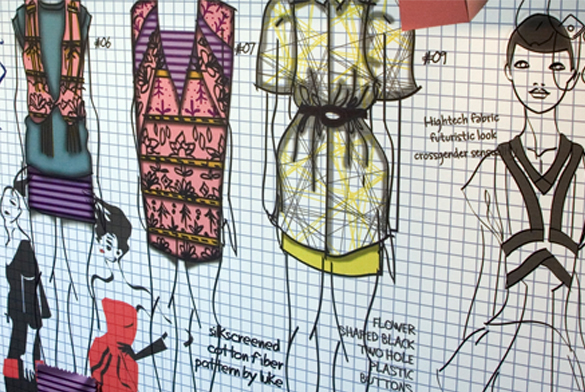 #06
#07
#09
Hightech fabric
futuristic look
crossgender sense
silkscreened
cotton fiber
pattern by luke
FLOWER
SHAPED BLACK
TWO HOLE
PLASTIC
BUTTONS